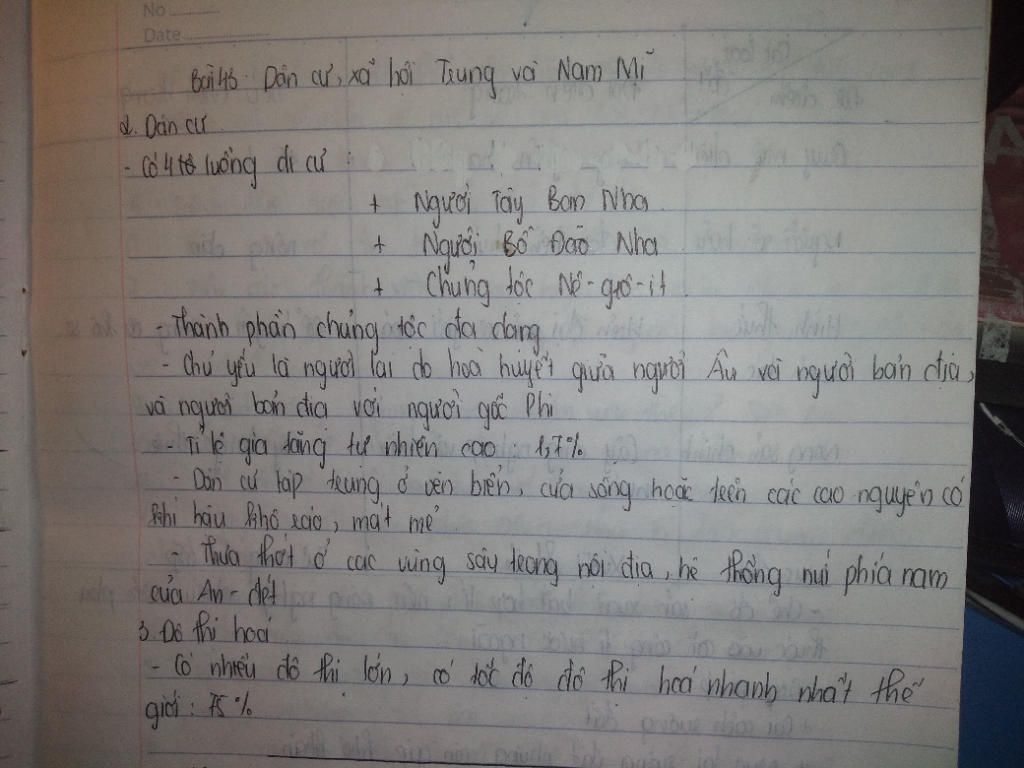 No
Date
Bài 43. Dân cư, xã hội Trung và Nam Mĩ
2. Dân cư
- Có 4 luồng di cư :
+ Người Tây Ban Nha
+ Người Bồ Đào Nha
+ Chủng tộc Nê-grô-it
- Thành phần chủng tộc đa dạng
- Chủ yếu là người lai do hoà huyết giữa người Âu với người bản địa,
và người bản địa với người gốc Phi
- Tỉ lệ gia tăng tự nhiên cao : 1,7%
- Dân cư tập trung ở ven biển, cửa sông hoặc trên các cao nguyên có
khí hậu khô ráo, mát mẻ
- Thưa thớt ở các vùng sâu trong nội địa, hệ thống núi phía nam
của An-đét
3. Đô thị hoá
- Có nhiều đô thị lớn, có tốc độ đô thị hoá nhanh nhất thế
giới : 75%